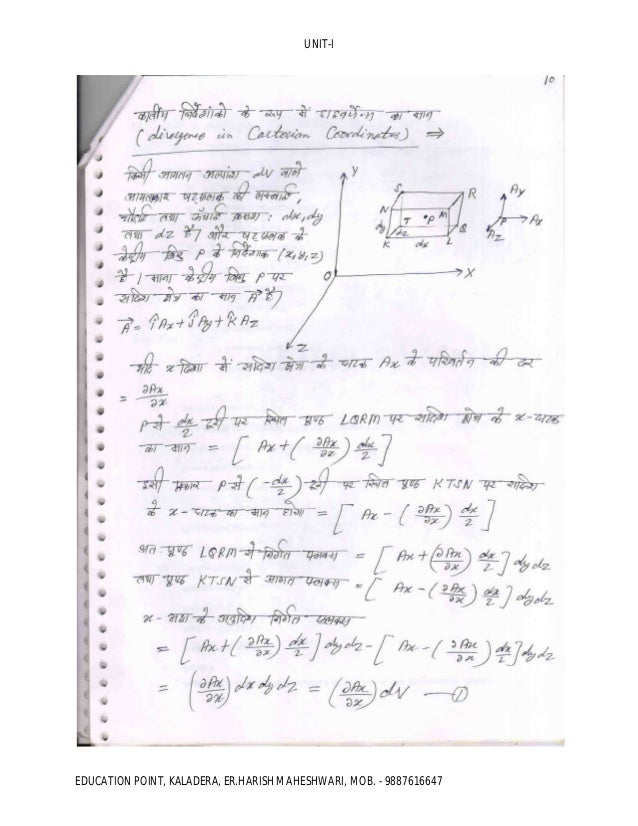 UNIT-I
10
कार्तीय निर्देशांको के रूप में डाइवर्जेन्स का मान
(divergence in Cartecian Coordinates) ⇒
किसी आयतन अल्पांश dV वाले
आयताकार षट्फलक की लम्बाई,
चौड़ाई तथा ऊँचाई क्रमशः dx, dy
तथा dz है। और षट्फलक के
केन्द्रीय बिन्दु P के निर्देशांक (x,y,z)
है। माना केन्द्रीय बिन्दु P पर
सदिश क्षेत्र का मान A⃗ है।
A⃗ = îAx + ĵAy + k̂Az
Y
S
R
N
T
P
M
dy
dz
Q
K
dx
L
O
X
Z
Ay
P
Ax
Az
यदि x दिशा में सदिश क्षेत्र के घटक Ax के परिवर्तन की दर
= ∂Ax/∂x
P से dx/2 दूरी पर स्थित पृष्ठ LQRM पर सदिश क्षेत्र के x-घटक
का मान = [Ax + (∂Ax/∂x) dx/2]
इसी प्रकार P से (-dx/2) दूरी पर स्थित पृष्ठ KTSN पर सदिश
के x-घटक का मान होगा = [Ax - (∂Ax/∂x) dx/2]
अतः पृष्ठ LQRM से निर्गत फ्लक्स = [Ax + (∂Ax/∂x) dx/2] dydz
तथा पृष्ठ KTSN से आगत फ्लक्स = [Ax - (∂Ax/∂x) dx/2] dydz
x-अक्ष के अनुदिश निर्गत फ्लक्स
= [Ax + (∂Ax/∂x) dx/2] dydz - [Ax - (∂Ax/∂x) dx/2] dydz
= (∂Ax/∂x) dxdydz = (∂Ax/∂x) dV —①
EDUCATION POINT, KALADERA, ER.HARISH MAHESHWARI, MOB. - 9887616647